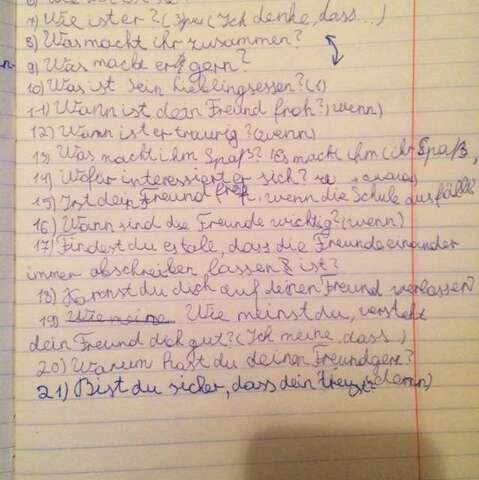 7) Wie ist er? (3 при (Ich denke, dass...)
8) Was macht ihr zusammen?
9) Was macht er gern?
10) Was ist sein Lieblingsessen? (1)
11) Wann ist dein Freund froh? (wenn)
12) Wann ist er traurig? (wenn)
13) Was macht ihm Spaß? Es macht ihm (ihr Spaß,
14) Wofür interessiert er sich?
15) Ist dein Freund froh, wenn die Schule ausfällt?
16) Wann sind die Freunde wichtig? (wenn)
17) Findest du es tale, dass die Freunde einander
immer abschreiben lassen ist?
18) Kannst du dich auf deinen Freund verlassen?
19) Wie meinst du, versteht
dein Freund dich gut? (Ich meine, dass)
20) Warum hast du deinen Freund gern?
21) Bist du sicher, dass dein treu ist denn)